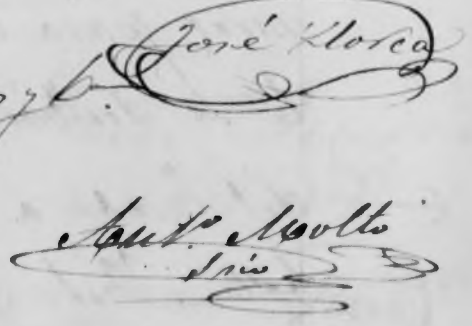 José Llorca
y b.
Antº Molto
Srio